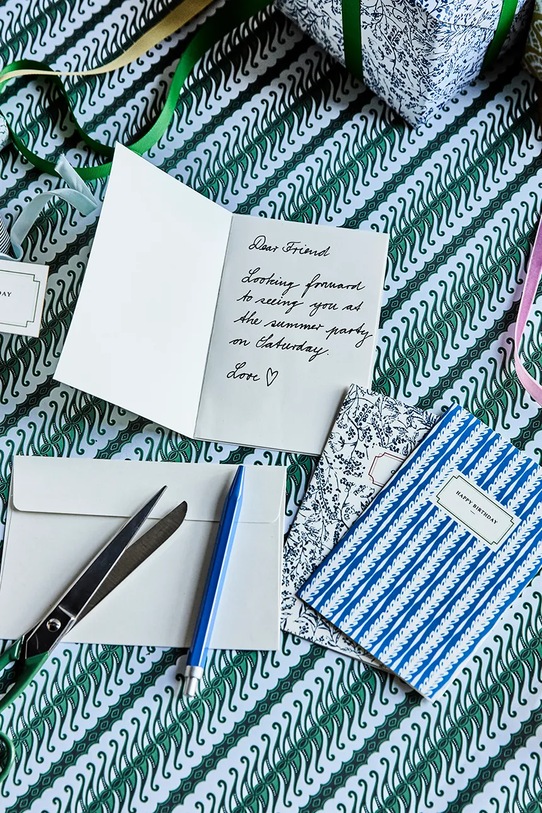 Dear Friend
Looking forward
to seeing you at
the summer party
on Saturday.
Love ♡
DAY
HAPPY BIRTHDAY